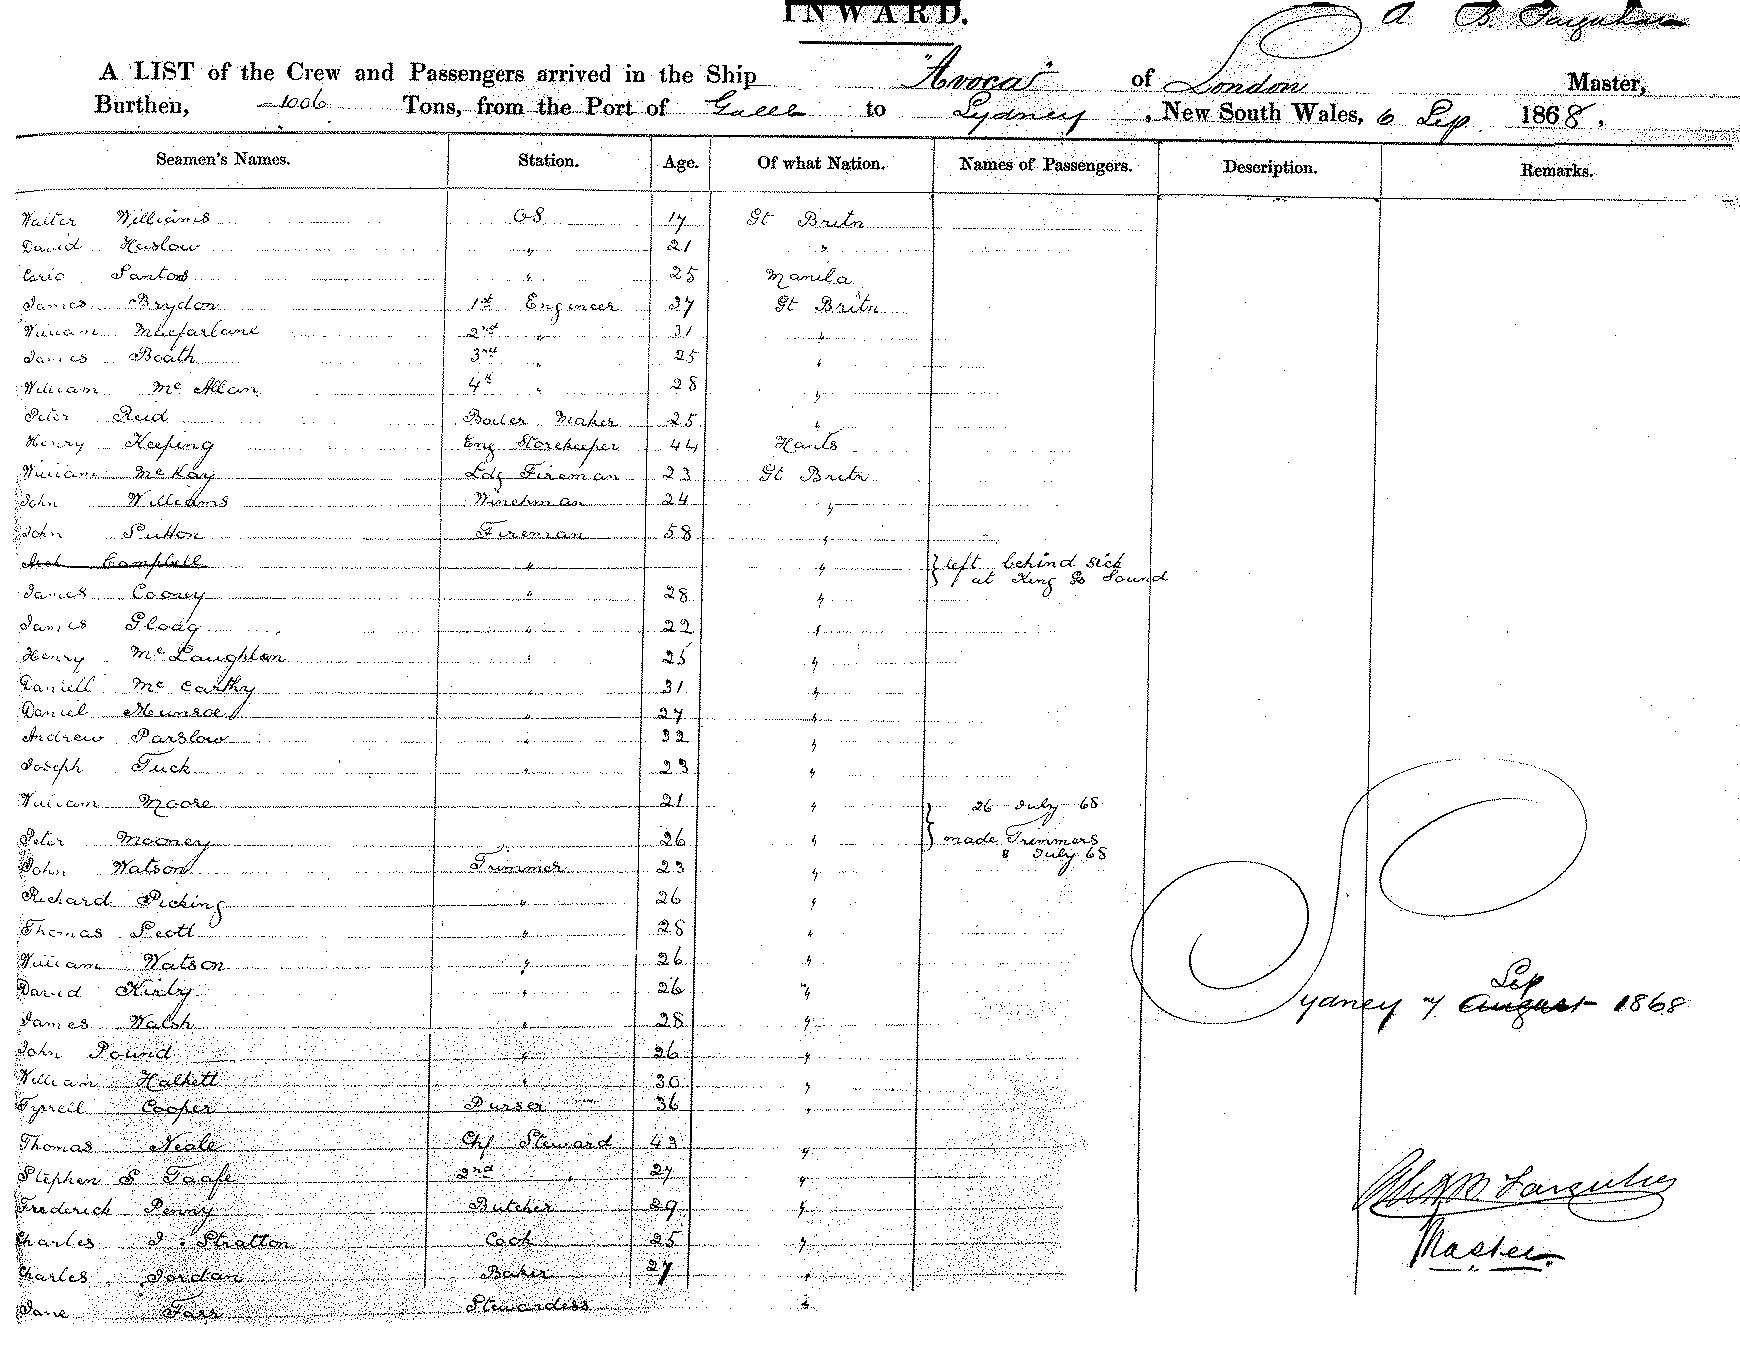 INWARD.
A B. Farquhar
A LIST of the Crew and Passengers arrived in the Ship "Avoca" of London Master,
Burthen, 1006 Tons, from the Port of Galle to Sydney, New South Wales, 6 Sep 1868.
Seamen's Names. Station. Age. Of what Nation. Names of Passengers. Description. Remarks.
Walter Williams OS 17 Gt Britn
David Haslow " 21 "
Santos " 25 Manila
James Brydon 1st Engineer 37 Gt Britn
William Macfarlane 2nd " 31 "
James Boath 3rd " 25 "
William McAllan 4th " 28 "
Peter Reid Boiler Maker 25 "
Henry Keeping Eng Storekeeper 44 Hants
William McKay Ldg Fireman 23 Gt Britn
John Williams Winchman 24 "
John Sutton Fireman 58 "
Campbell " " } left behind sick
at King Go Sound
James Cooney " 28 "
James Gloag " 22 "
Henry McLaughlan " 25 "
Daniell McCarthy " 31 "
Daniel Munroe " 27 "
Andrew Parslow " 32 "
Joseph Tuck " 23 "
William Moore 21 " } 26 July 68
Peter Mooney " 26 " made Trimmers
8 July 68
John Watson Trimmer 23 "
Richard Picking " 26 "
Thomas Scott " 28 "
William Watson " 26 "
David Kirby " 26 "
Sep
Sydney 7 August 1868
James Walsh " 28 "
John Pound " 26 "
William Halkett " 30 "
Tyrrell Cooper Purser 36 "
Thomas Neale Chf Steward 43 "
Stephen S Taafe 2nd " 27 "
Frederick Penny Butcher 29 "
Charles J Stratton Cook 25 "
Charles Jordan Baker 27 "
Jane Farr Stewardess "
Alex B Farquhar
Master